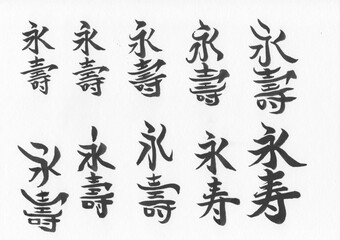 永壽 永壽 永壽 永壽 永壽
永壽 永壽 永壽 永寿 永寿